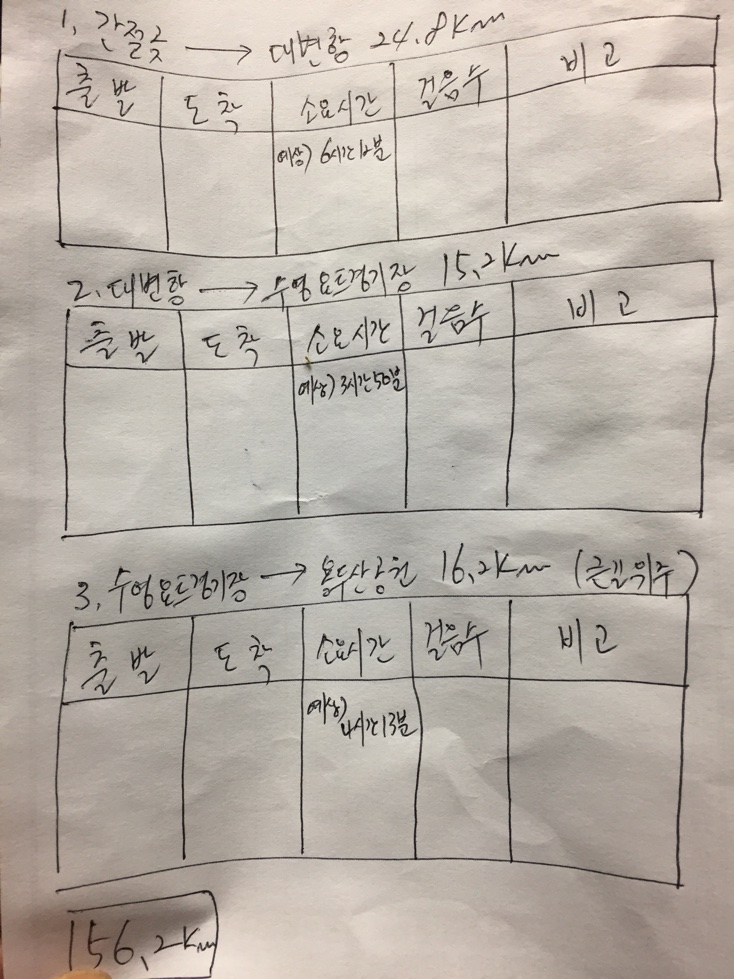 1, 간절곶 → 대변항 24.8Km
출발 도착 소요시간 걸음수 비고
예상) 6시간12분
2. 대변항 → 수영요트경기장 15.2Km
출발 도착 소요시간 걸음수 비고
예상) 3시간50분
3, 수영요트경기장 → 용두산공원 16.2Km (큰길위주)
출발 도착 소요시간 걸음수 비고
예상)
4시간13분
156.2Km